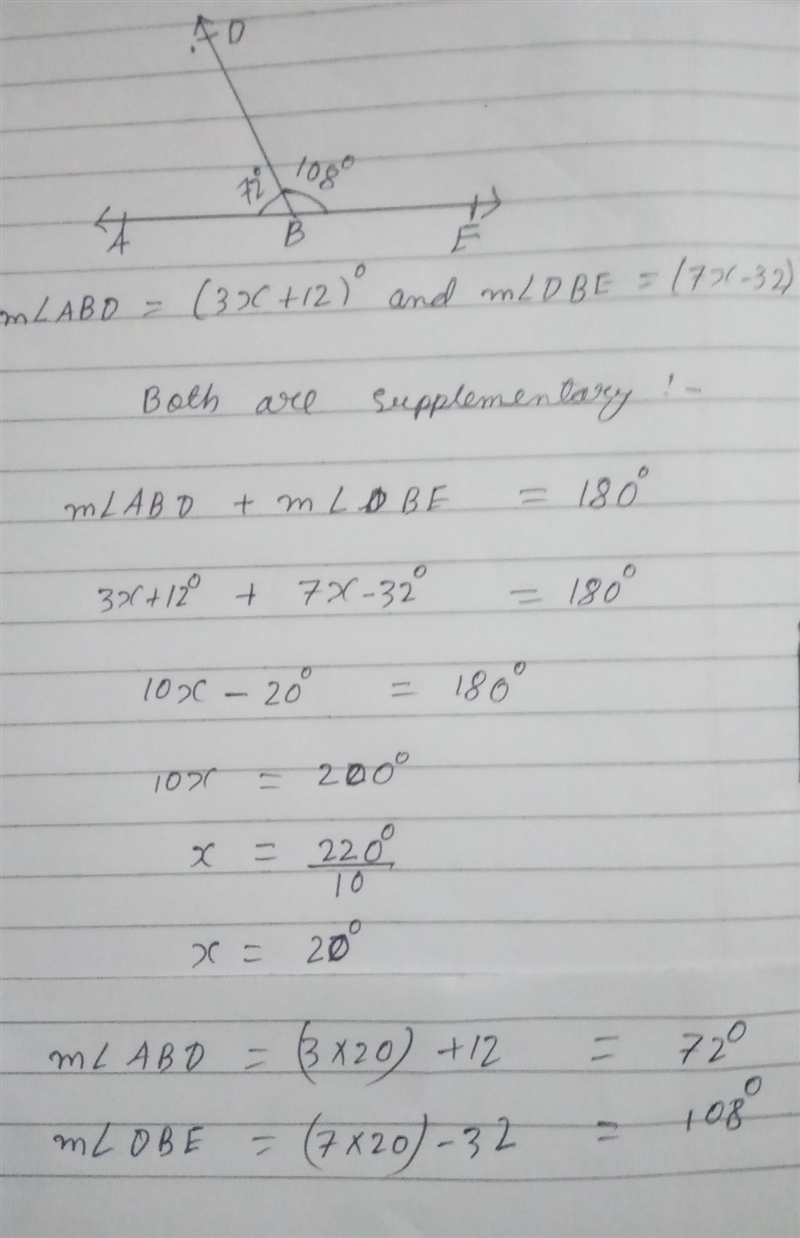 D
72° 108°
A B E
m∠ABD = (3x+12)° and m∠DBE = (7x-32)
Both are supplementary :-
m∠ABD + m∠DBE = 180°
3x+12° + 7x-32° = 180°
10x - 20° = 180°
10x = 200°
x = 220°/10
x = 20°
m∠ABD = (3×20) +12 = 72°
m∠DBE = (7×20) -32 = 108°